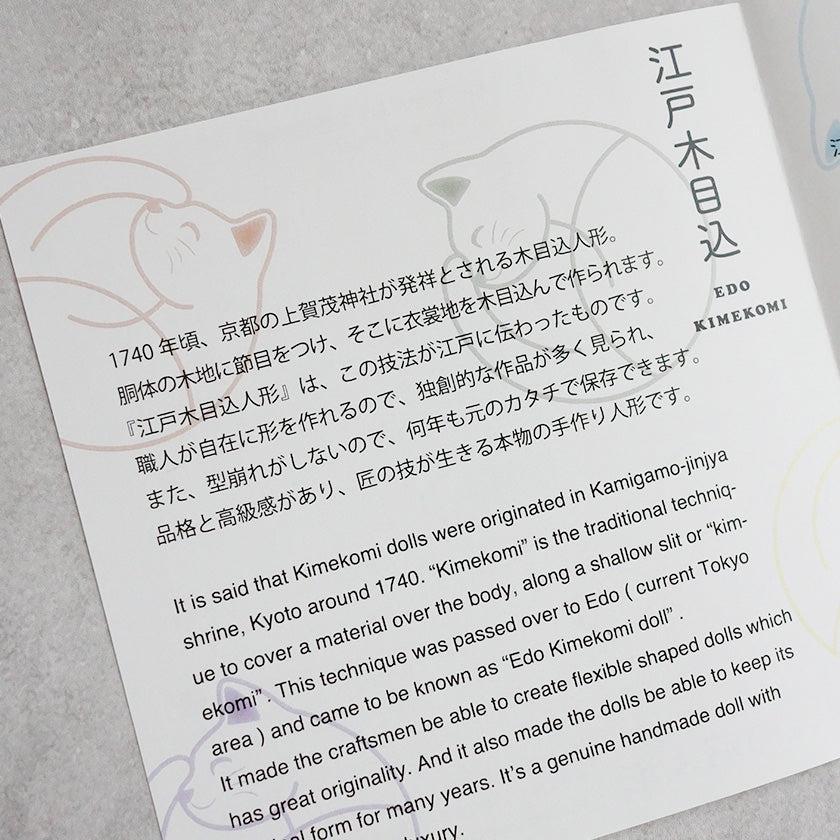 江戸木目込
EDO
KIMEKOMI
1740年頃、京都の上賀茂神社が発祥とされる木目込人形。
胴体の木地に節目をつけ、そこに衣裳地を木目込んで作られます。
『江戸木目込人形』は、この技法が江戸に伝わったものです。
職人が自在に形を作れるので、独創的な作品が多く見られ、
また、型崩れがしないので、何年も元のカタチで保存できます。
品格と高級感があり、匠の技が生きる本物の手作り人形です。
It is said that Kimekomi dolls were originated in Kamigamo-jinjya
shrine, Kyoto around 1740. “Kimekomi” is the traditional techniq-
ue to cover a material over the body, along a shallow slit or “kim-
ekomi” . This technique was passed over to Edo ( current Tokyo
area ) and came to be known as “Edo Kimekomi doll” .
It made the craftsmen be able to create flexible shaped dolls which
has great originality. And it also made the dolls be able to keep its
form for many years. It’s a genuine handmade doll with